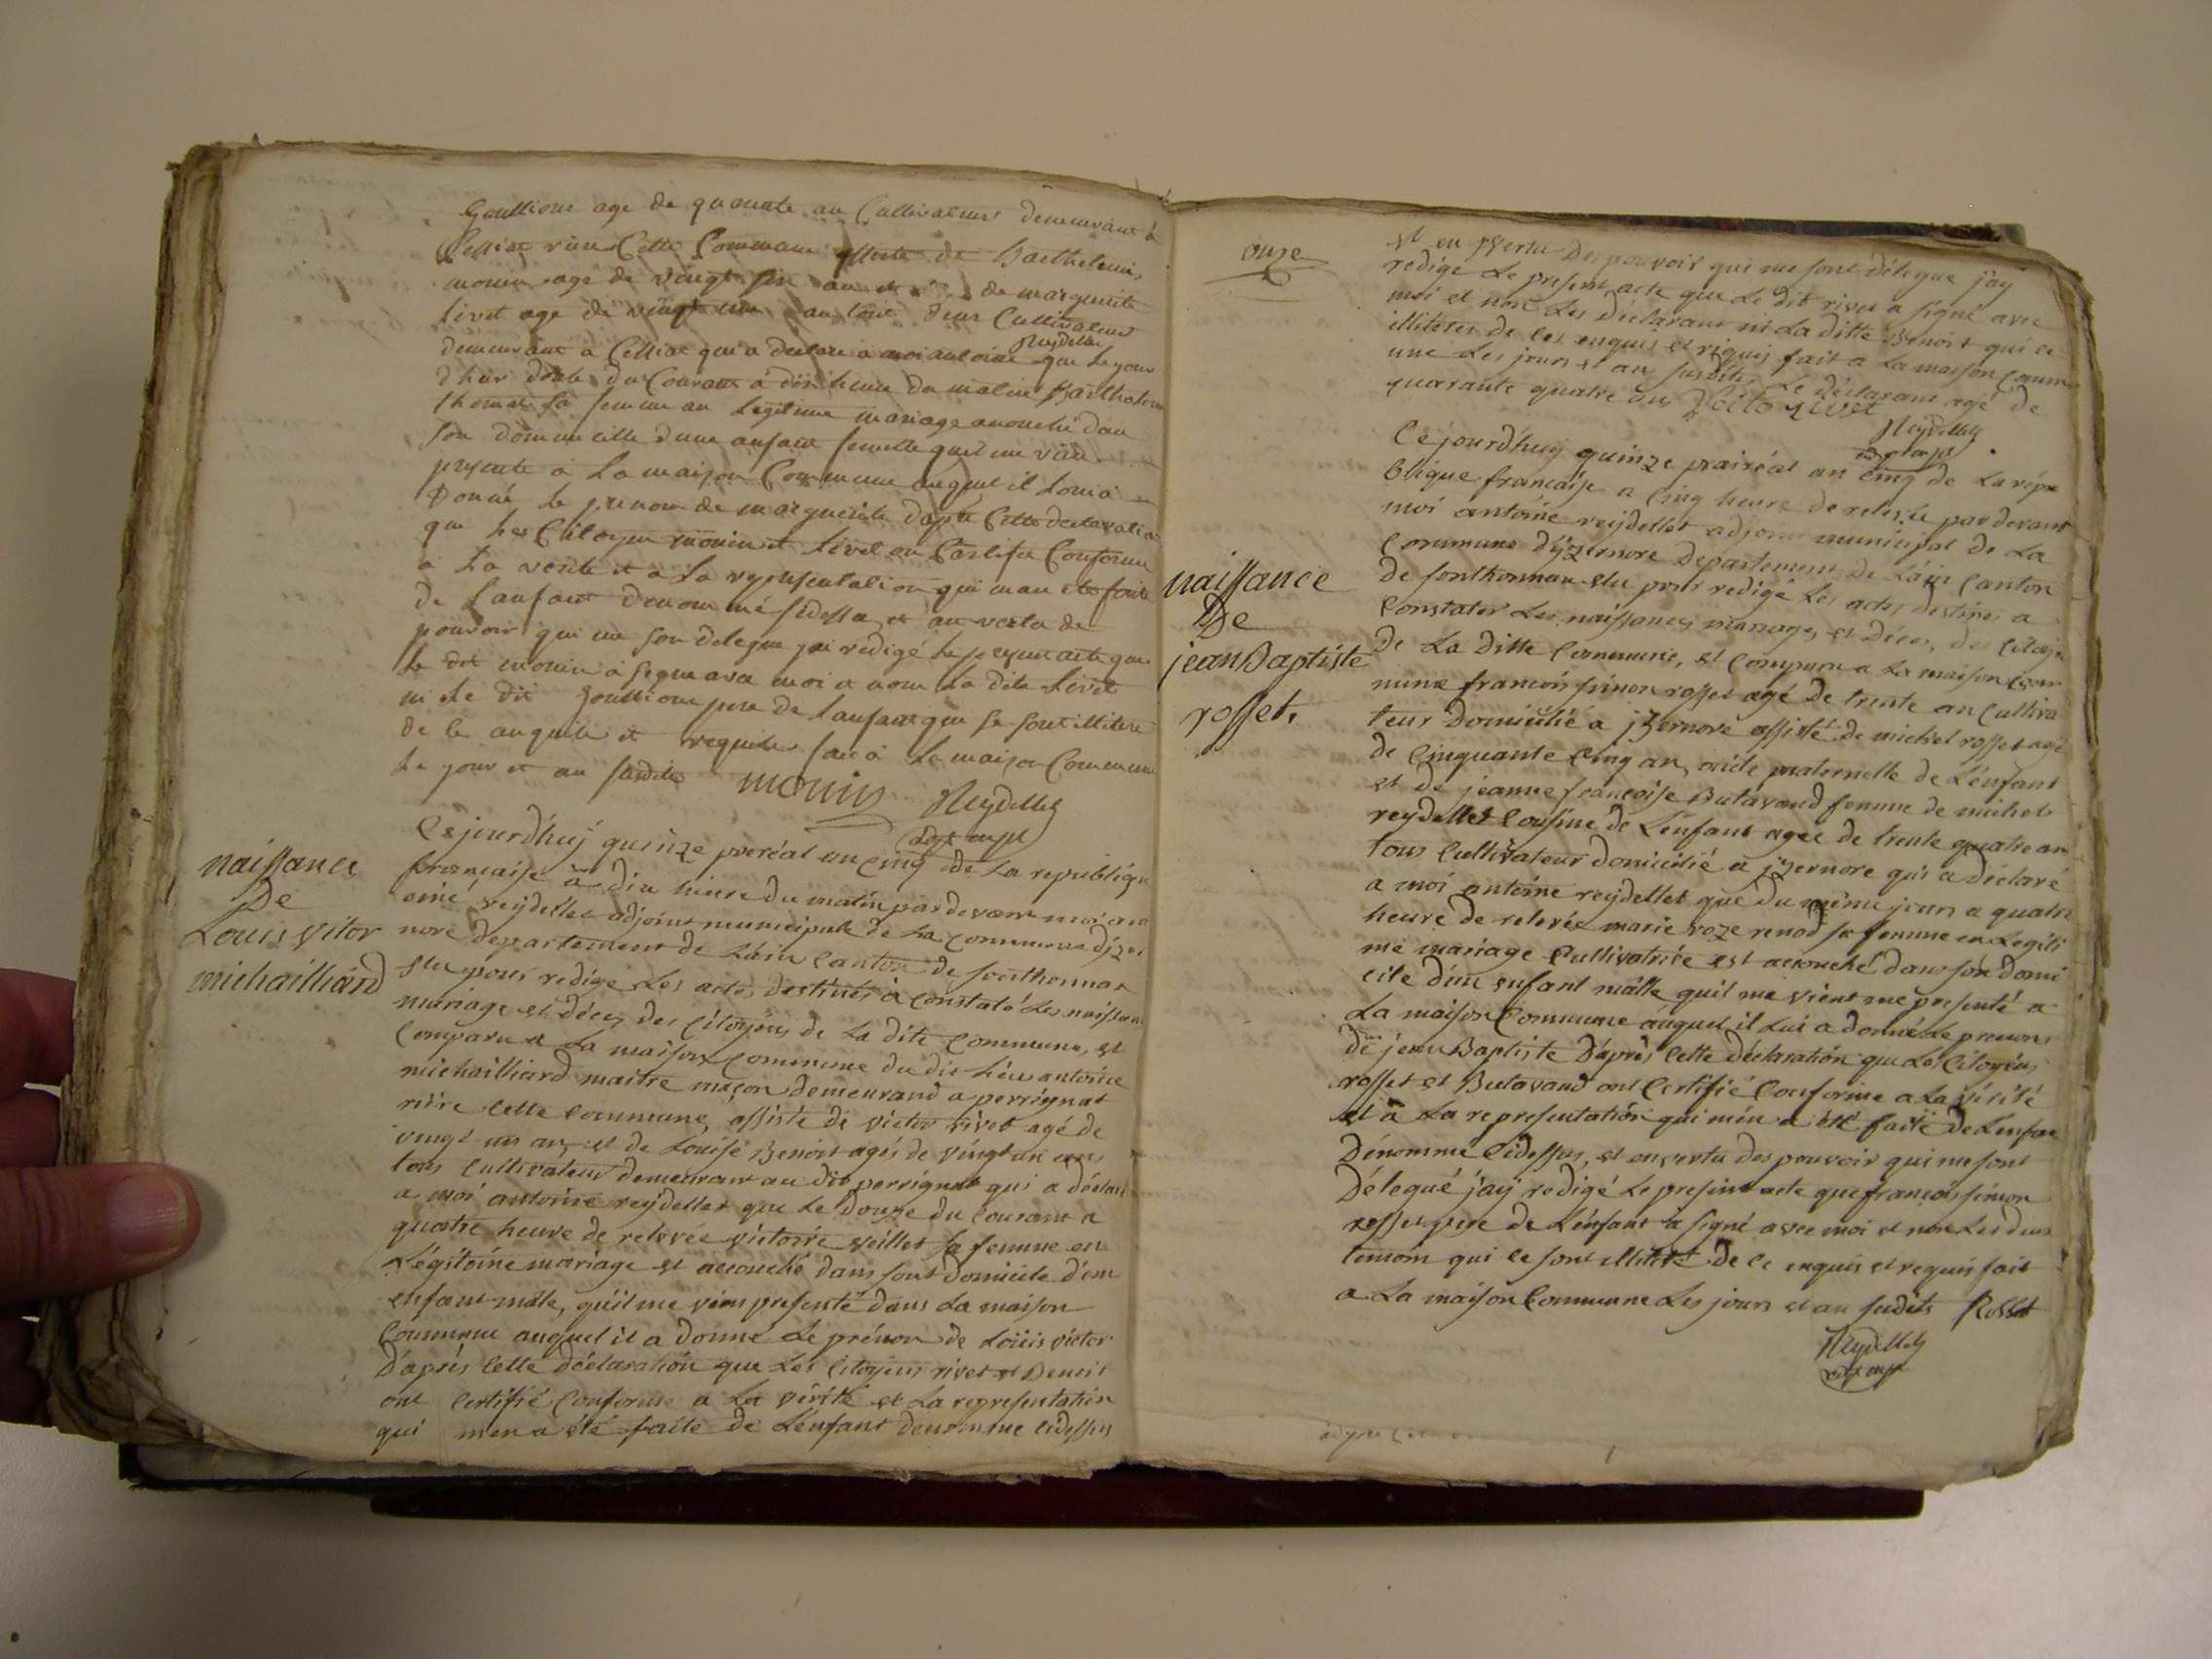 Goullioux age de quarante an Cultivateur demeurant à
Cellies rière Cette Commune assisté de Barthelemi
monin age de vingt six an et de marguerite
livet age de vingt une an tout deux Cultivateur
Reydellet
demeurant a Cellies qui a declare a moi antoine que le jour
dhier double du Courant à dix heure du matin
thomas sa femme an legitime mariage acouché dan
son dommicille dune anfant femelle quil me vien
presente à la maison Commune auquel il loui a
Donné le prenom de marguerite dapre Cette declaration
que les Citoyen monin et livet on Certifie Conforme
a la verite et a la representation qui man ete faite
de lanfant denommé sidessa et an vertu de
pouvoir qui me son delegue jai redigé le present acte que
le dit monin à signe avec moi a nom la dite livet
ni le dit Goullioux pere de lanfant que se sont illitere
de le anquite et requite fait à la maison Commune
le jour et an susdite monin Reydellet
adjt mpl
naissance
De
Louis vitor
michailliard
Cejourd'huij quinze preréal an cinq de la republiqu
francaise à dix heure du matin par devant moi ant
oine reijdellet adjoint municipale de la commune d'izer
nore departement de l'ain canton de sonthonnax
elu pour redige les actes destinés à constaté les naissan
mariage et déces des citoyens de la dite commune, est
comparu a la maison commune du dit lieu antoine
michailliard maitre maçon demeurand a perrignat
rière cette commune, assisté de victor rivet agé de
vingt un ans et de Louise Benoit agés de vingt un ans
tous cultivateur demeurant au dit perrignat qui a déclaré
a moi antoine reijdellet que le douze du courant a
quatre heure de relevée victoire veillet sa femme en
Légitoine mariage est acouché dans sont domicile d'un
enfant mâle, qu'il me vien presenté dans la maison
Commune auquel il a donné le prénom de Loüis victor
D'après cette déclaration que les citoijens rivet et Benoit
ont certifié conforme a la vérité et la representation
qui men a été faite de l'enfant denomme cidessus
onze
et en vertu Des pouvoir qui me sont délegue j'aij
redige le present acte que le dit rivet a signé avec
moi et non les déclarant ni la ditte Benoit qui ce
illiteres de ces enquis et riquis fait a la maison comm
une les jours et an susdits, le déclarant agé de
quarante quatre ans Victo rivet
Reydellet
adjt mpl
naissance
De
jean Baptiste
rosset.
Cejourd'huij quinze prairéal an cinq de la répu
blique francaise a cinq heure de relevée par devant
moi antoine reijdellet adjoint municipal de la
commune d'ijzernore departement de L'ain canton
de sonthonnax elu pour redigé les actes destines a
constater les naissances mariages et déces, des citoije
de la ditte commune, est comparu a la maison com
mune francois simon rosset agé de trente an cultiva
teur Domicilié a jzernore assisté de michel rosset agé
de cinquante cinq an, oncle paternelle de L'enfant
et de jeanne françoise Butavand femme de michel
reijdellet cousine de L'enfant agée de trente quatre an
tous cultivateur domicilié a jzernore qui a déclaré
a moi antoine reijdellet que du même jours a quatre
heure de relevée marie roze renod sa femme en Legiti
me mariage cultivatrice est acouché dans son domi
cile d'un enfant mâlle quil me vient me presenté a
La maison Commune auquel il lui a donné le prenom
de jean Baptiste D'après cette déclaration que les citoijens
rosset et Butavand ont certifié conforme a la vérité
et à la representation qui m'en a été faite de L'enfan
Dénomme cidessus, et en vertu des pouvoir qui me sont
Délegué j'aij redigé le present acte que francois simon
rosset pere de L'enfant a signé avec moi et non les deux
temoin qui ce sont illiteré de ce enquis et requis fait
a La maison commune les jours et an sudits Rosset
Reydellet
adjt mpl